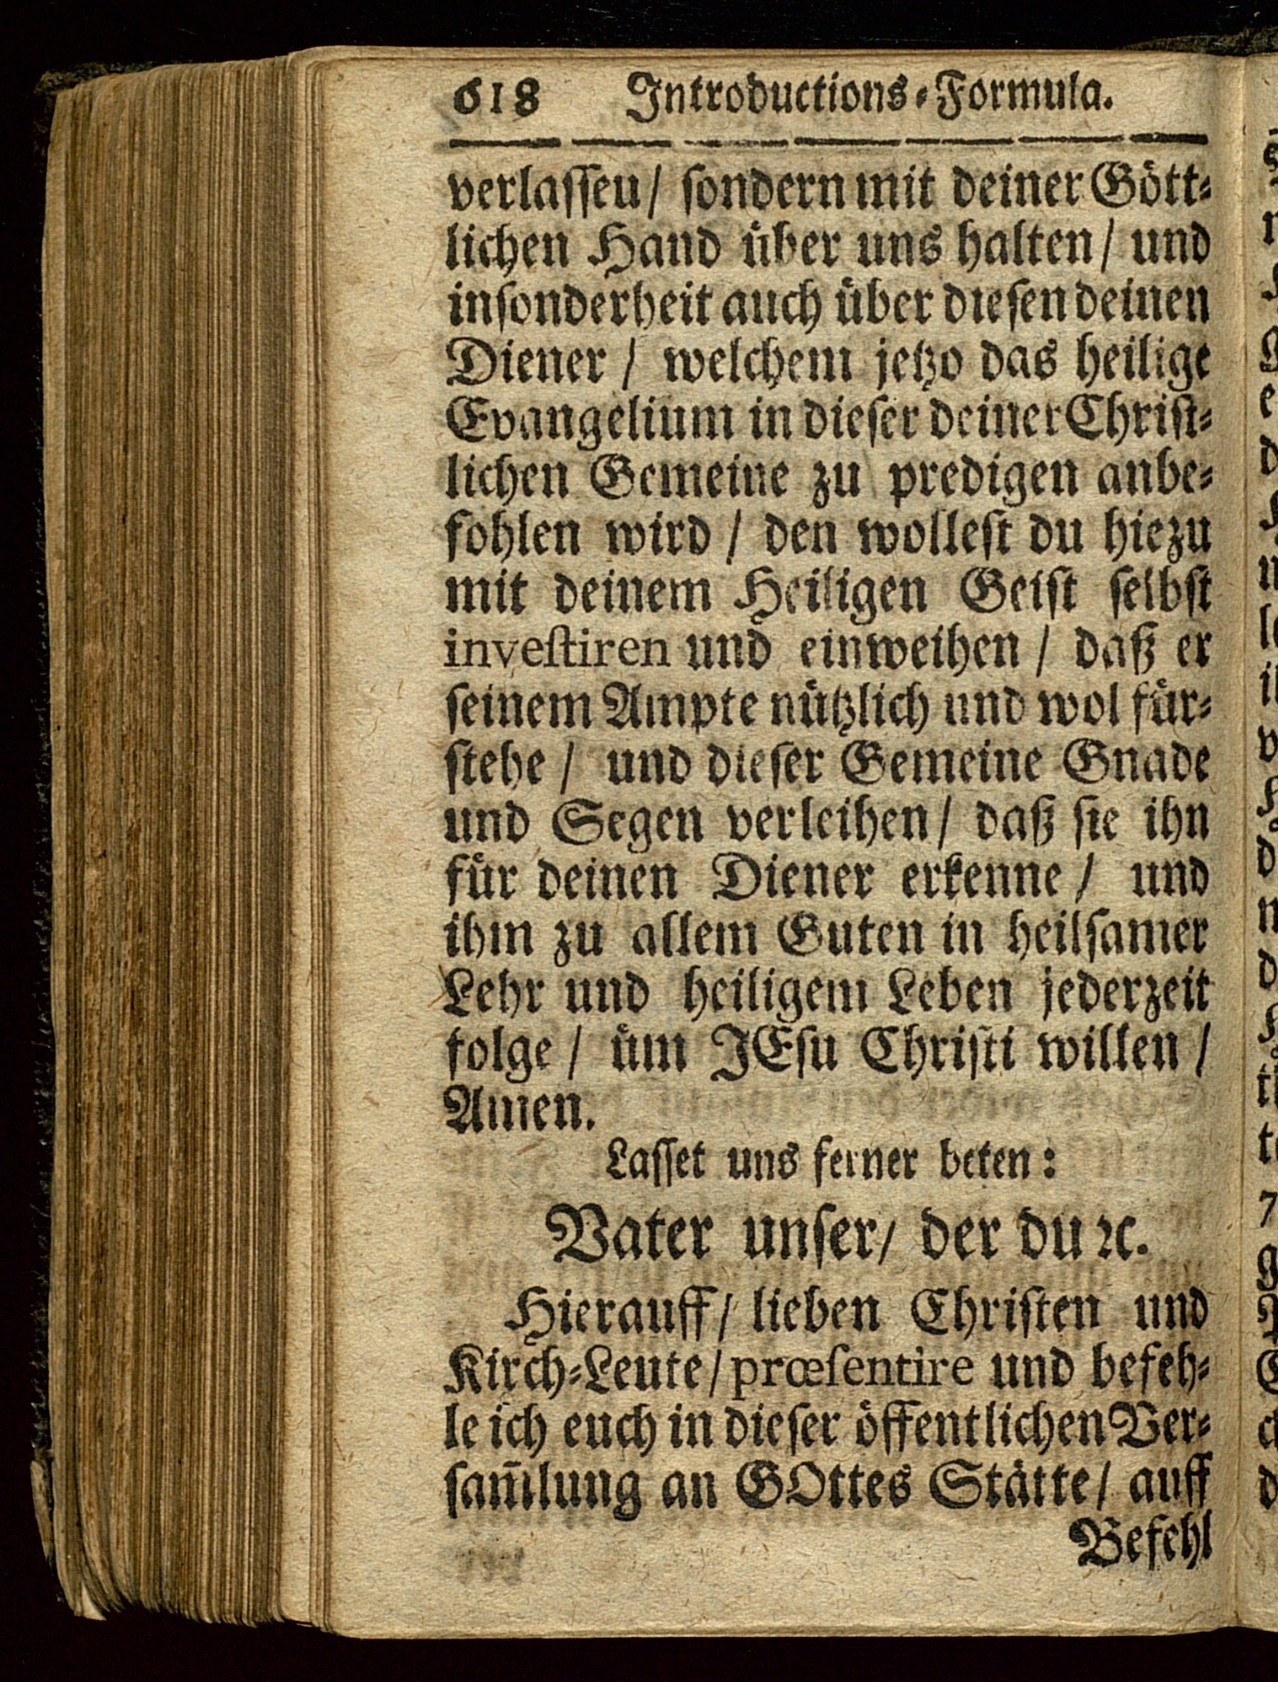 618 Introductions-Formula.
verlassen/ sondern mit deiner Gött-
lichen Hand über uns halten/ und
insonderheit auch über diesen deinen
Diener / welchem jetzo das heilige
Evangelium in dieser deiner Christ-
lichen Gemeine zu predigen anbe-
fohlen wird / den wollest du hiezu
mit deinem Heiligen Geist selbst
investiren und einweihen / daß er
seinem Ampte nützlich und wol für-
stehe / und dieser Gemeine Gnade
und Segen verleihen/ daß sie ihn
für deinen Diener erkenne / und
ihm zu allem Guten in heilsamer
Lehr und heiligem Leben jederzeit
folge / üm JEsu Christi willen /
Amen.
Lasset uns ferner beten:
Vater unser/ der du ꝛc.
Hierauff/ lieben Christen und
Kirch-Leute/ præsentire und befeh-
le ich euch in dieser öffentlichen Ver-
sam̃lung an GOttes Stätte/ auff
Befehl